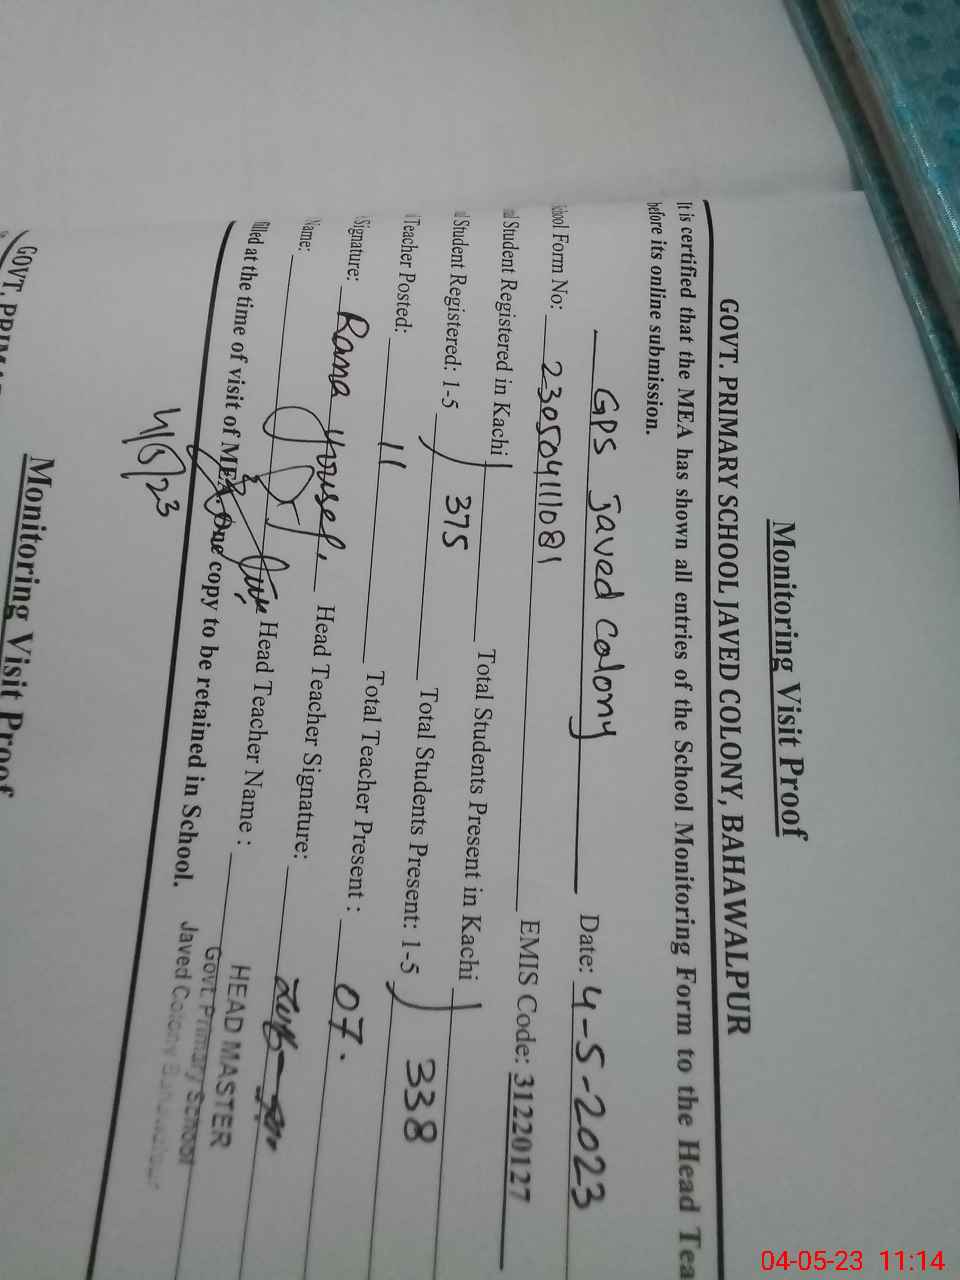 Monitoring Visit Proof
GOVT. PRIMARY SCHOOL JAVED COLONY, BAHAWALPUR
It is certified that the MEA has shown all entries of the School Monitoring Form to the Head Tea
before its online submission.
GPS Javed Colony Date: 4-5-2023
School Form No: 230504111081 EMIS Code: 31220127
al Student Registered in Kachi Total Students Present in Kachi
al Student Registered: 1-5 375 Total Students Present: 1-5 338
l Teacher Posted: 11 Total Teacher Present : 07.
Signature: Rana Yousef, Head Teacher Signature:
Name: Head Teacher Name :
filled at the time of visit of MEA. One copy to be retained in School.
HEAD MASTER
Govt. Primary School
Javed Colony
4/5/23
Monitoring Visit Proof
GOVT. PRIMA
04-05-23 11:14